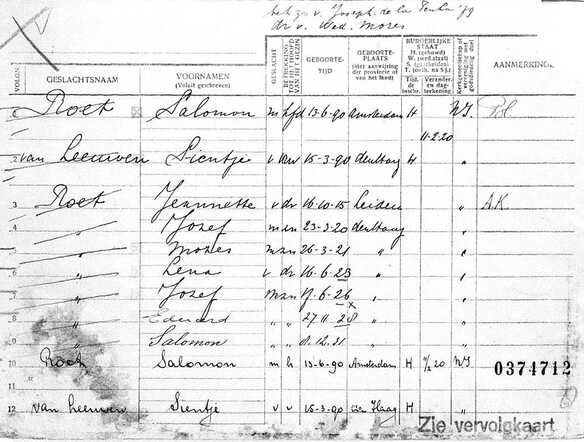 v. Joseph. de la Penha 79
dr v. Wed. Mozes
VOLGN.
GESLACHTSNAAM
VOORNAMEN
(Voluit geschreven)
GESLACHT
BETREKKING TOT HET HOOFD VAN HET GEZIN
GEBOORTE-TIJD
GEBOORTE-PLAATS
(Met aanwijzing der provincie of van het land)
BURGERLIJKE STAAT
H. (gehuwd)
W. (wed.staat)
S. (gescheiden)
T. (sch. na S.)
Tijd. de inschr.
Verander. en dag-teekening
Kerkgenootschap of vereeniging met godsdienstig doel
AANMERKING.
Roet Salomon m hfd 13-6-90 Amsterdam H NI.
11-2-20
2 van Leeuwen Sientje v 15-3-90 denHaag H "
3 Roet Jeannette v dr 16-10-15 Leiden " A.K.
4 " Jozef m zn 23-3-20 denHaag "
5 " Mozes m zn 26-3-21 " "
6 " Lena v dr 16-6-23 " "
7 " Jozef m zn 17-6-26 " "
8 " Eduard " " 27-11-28 "
9 " Salomon " " 8.12.31 "
10 Roet Salomon m h 13-6-90 Amsterdam H 11/2 20 NI
11
0374712
12 van Leeuwen Sientje v v 15-3-90 Haag H "
Zie vervolgkaart